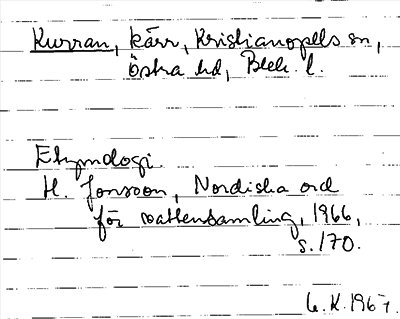 Kurran, kärr, Kristianopels sn,
Östra hd, Blek. l.
Etymologi.
H. Jonsson, Nordiska ord
för vattensamling, 1966,
s. 170.
G. K. 1967.